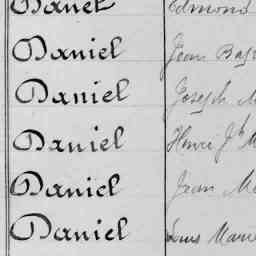 Danet Edmond
Daniel Jean Bap
Daniel Joseph M
Daniel Henri Jh M
Daniel Jean Ma
Daniel Louis Marie